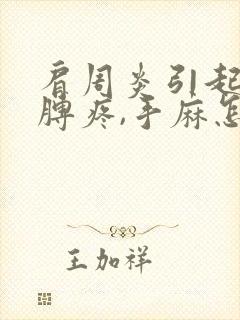 肩周炎引起
脾疼,手麻怎
王加祥